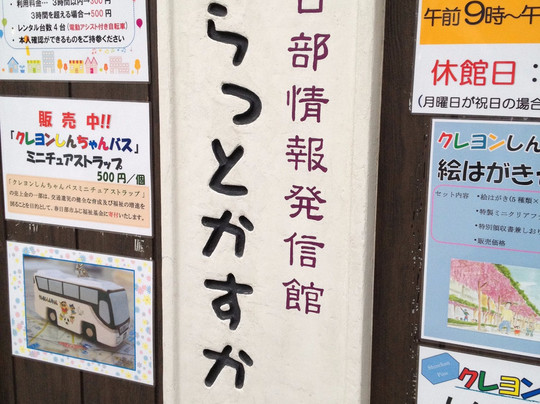 ・利用料金… 3時間以内→300円
3時間を超える場合→500円
・レンタル台数4台(電動アシスト付き自転車)
・本人確認ができるものをご持参ください
販売中!!
「クレヨンしんちゃんバス」
ミニチュアストラップ
500円/個
「クレヨンしんちゃんバスミニチュアストラップ」
の売上金の一部は、交通遺児の健全な育成及び福祉の増進を
図ることを目的として、春日部市ふじ福祉基金に寄付いたします。
部情報発信館
らっとかすか
午前9時～午
休館日：
(月曜日が祝日の場合
クレヨンしん
絵はがき
セット内容
・絵はがき(5種類×
・特製ミニクリアフ
・特別領収書兼しお
・販売価格
クレヨン